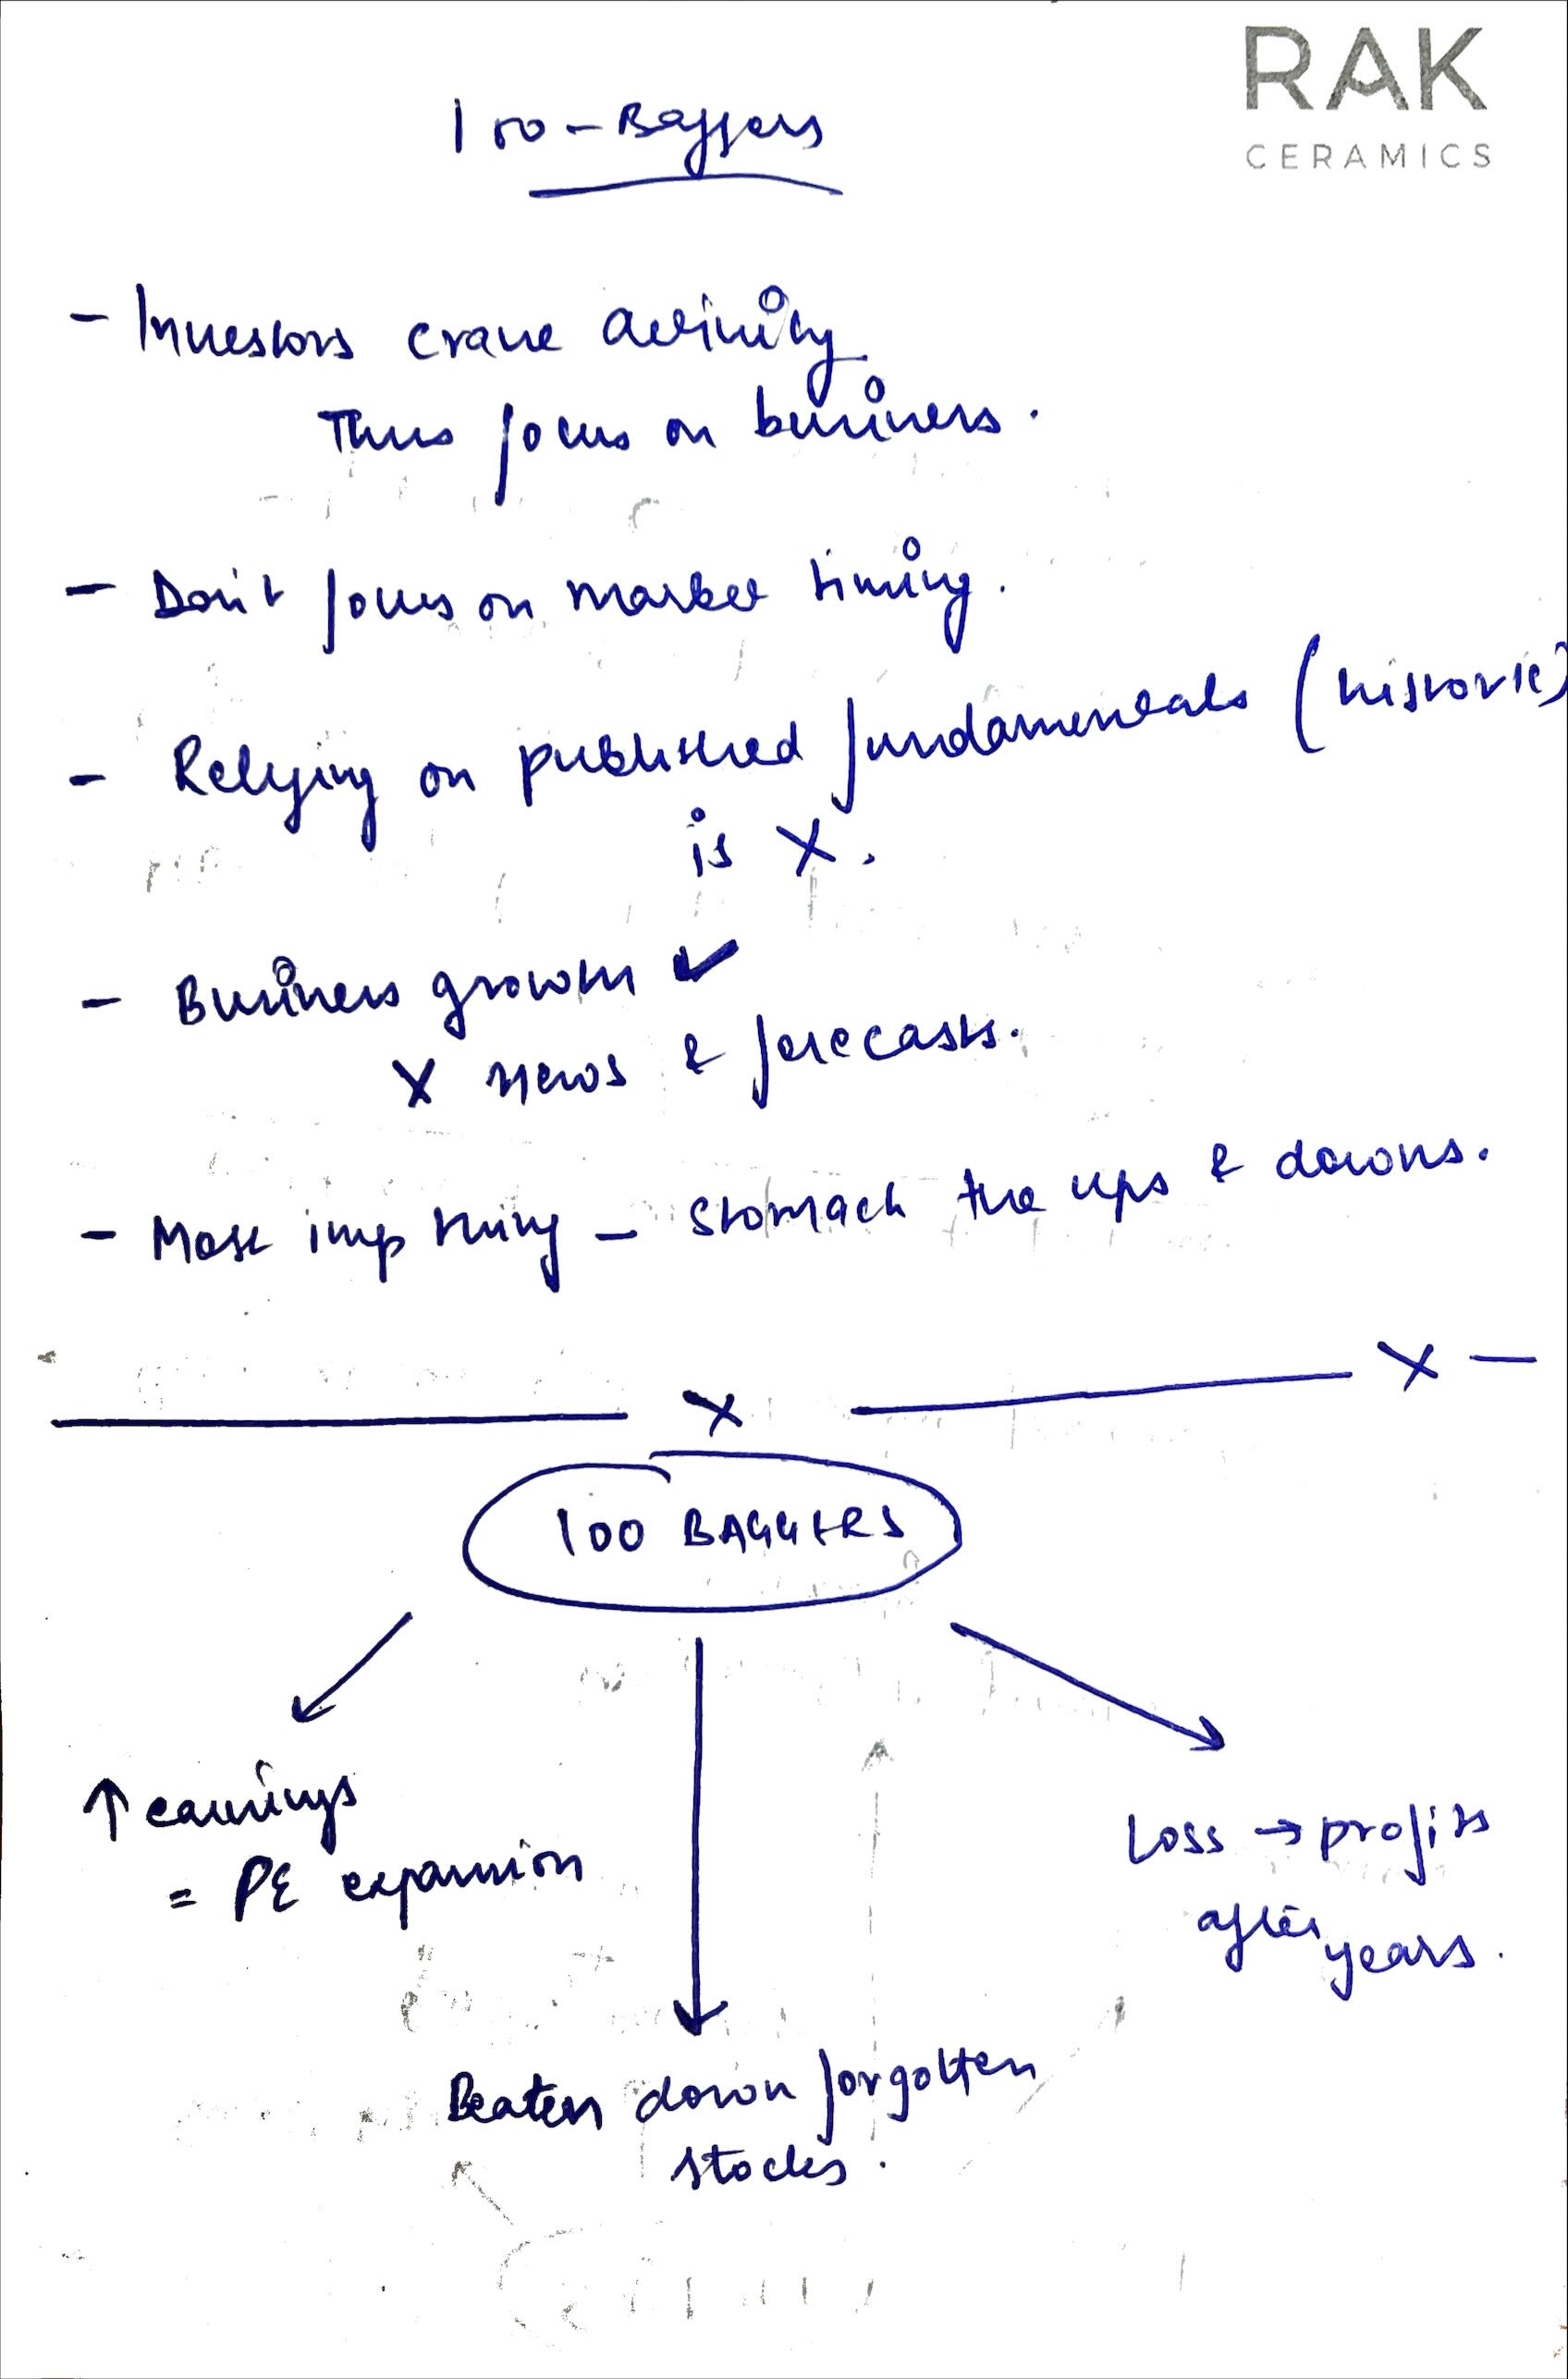 RAK
CERAMICS
100-Baggers
- Investors crave activity
Thus focus on business.
- Don't focus on market timing.
- Relying on published fundamentals (historic)
is X.
- Business growth ✓
X news & forecasts.
- Most imp thing - Stomach the ups & downs.
X X
100 BAGGERS
↑ earnings
= PE expansion
Loss → profits
after years.
Beaten down forgotten
stocks.